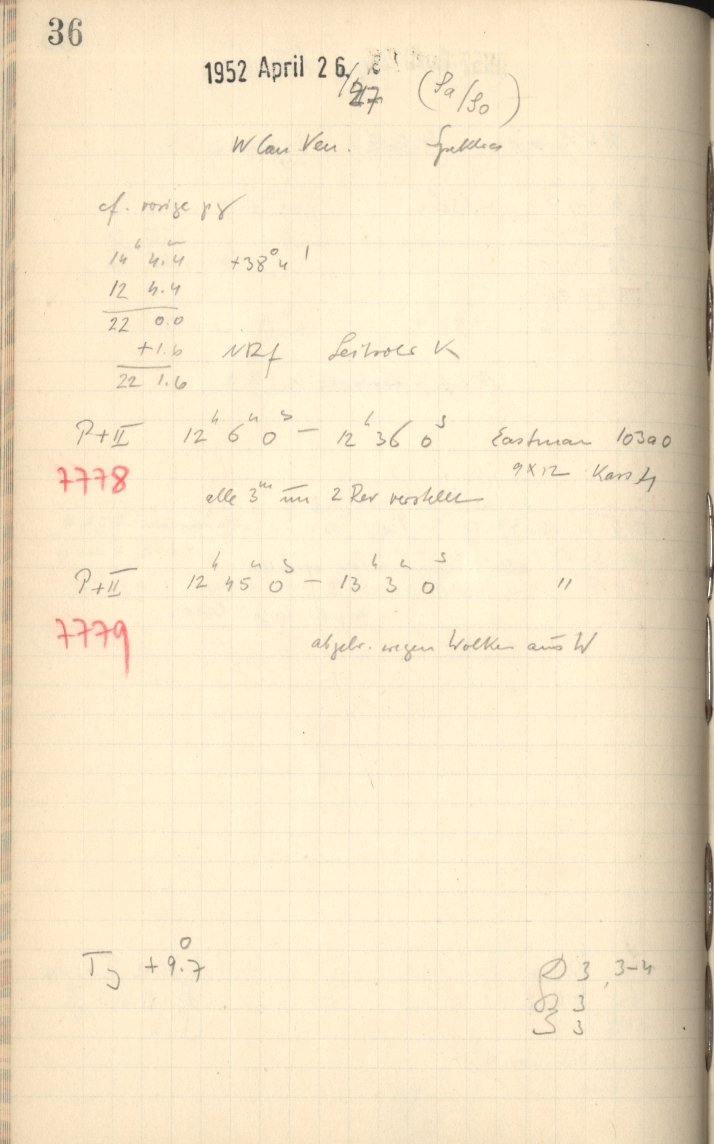 36
1952 April 26./27 (Sa/So)
W Can Ven.
cf. vorige pg
14ʰ 4.4ᵐ +38° 4'
12 4.4
22 0.0
+1.6 NRf
22 1.6
P+II 12ʰ 6ᵐ 0ˢ – 12ʰ 36 0ˢ Eastman 103a0
7778 9x12 Kass 4
alle 3ᵐ um 2 Rev verstellt
P+II 12ʰ 45ᵐ 0ˢ – 13ʰ 3ᵐ 0ˢ "
7779
abgebr. wegen Wolken aus W
+9.7° 3, 3-4
3
S 3